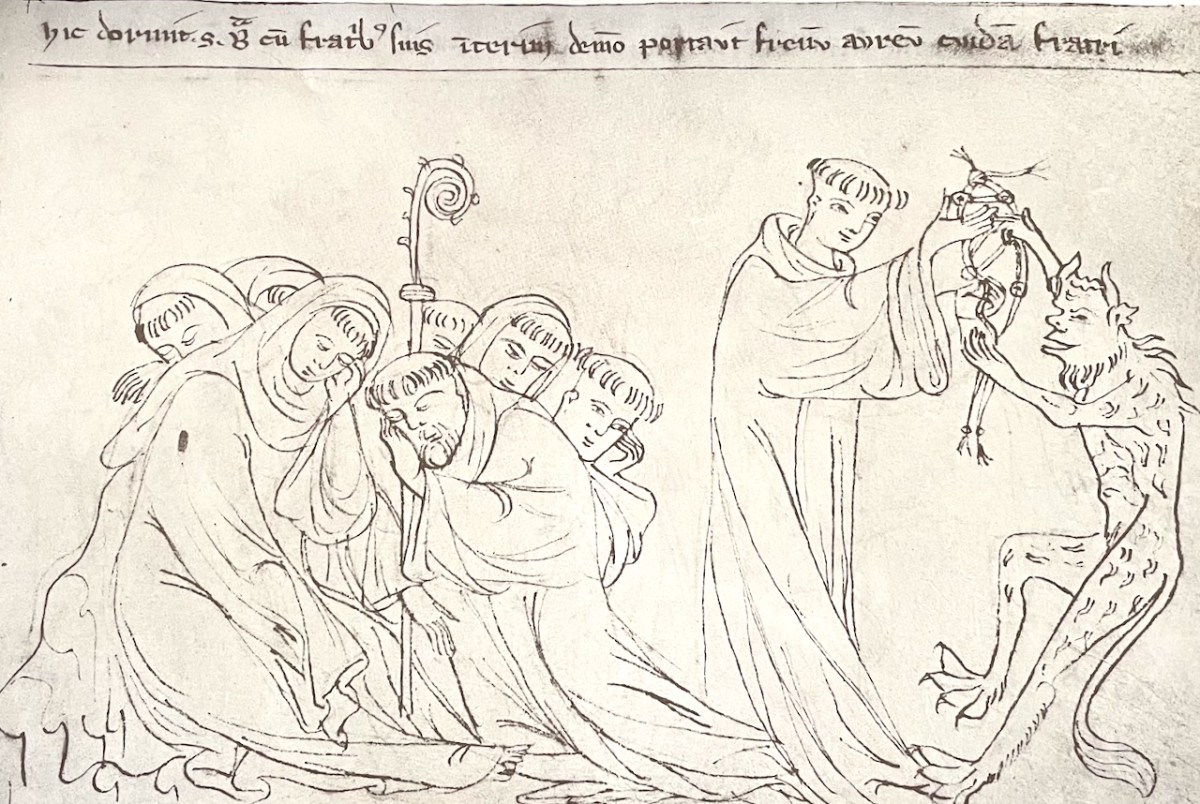 hic dormit .s. B̃ cū fratibꝰ suis īterim demō portavit frenū avreū cuidā fratri